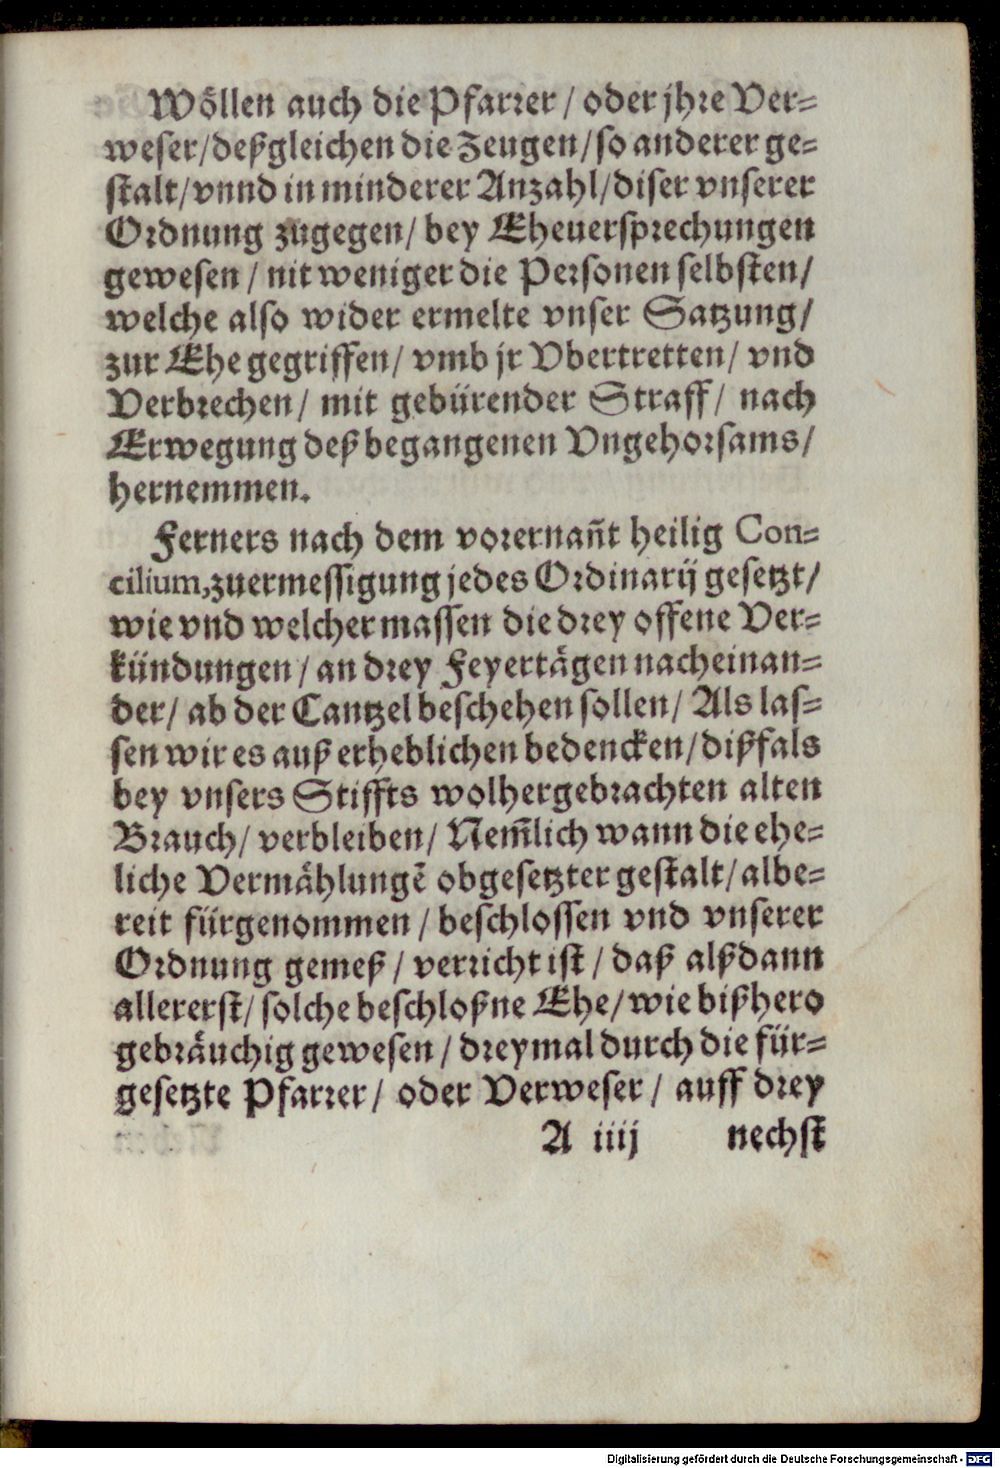 Wöllen auch die Pfarrer / oder jhre Ver-
weser/deßgleichen die Zeugen/so anderer ge-
stalt/vnnd in minderer Anzahl/diser vnserer
Ordnung zugegen/ bey Eheuersprechungen
gewesen / nit weniger die Personen selbsten/
welche also wider ermelte vnser Satzung/
zur Ehe gegriffen/ vmb jr Vbertretten/ vnd
Verbrechen/ mit gebürender Straff/ nach
Erwegung deß begangenen Vngehorsams/
hernemmen.
Ferners nach dem vorernañt heilig Con-
cilium,zuermessigung jedes Ordinarij gesetzt/
wie vnd welcher massen die drey offene Ver-
kündungen/ an drey Feyertägen nacheinan-
der/ ab der Cantzel beschehen sollen/ Als las-
sen wir es auß erheblichen bedencken/dißfals
bey vnsers Stiffts wolhergebrachten alten
Brauch/ verbleiben/ Nem̃lich wann die ehe-
liche Vermählungẽ obgesetzter gestalt/albe-
reit fürgenommen / beschlossen vnd vnserer
Ordnung gemeß / verricht ist / daß alßdann
allererst/ solche beschloßne Ehe/ wie bißhero
gebräuchig gewesen / dreymal durch die für-
gesetzte Pfarrer/ oder Verweser / auff drey
A iiij nechst
Digitalisierung gefördert durch die Deutsche Forschungsgemeinschaft - DFG